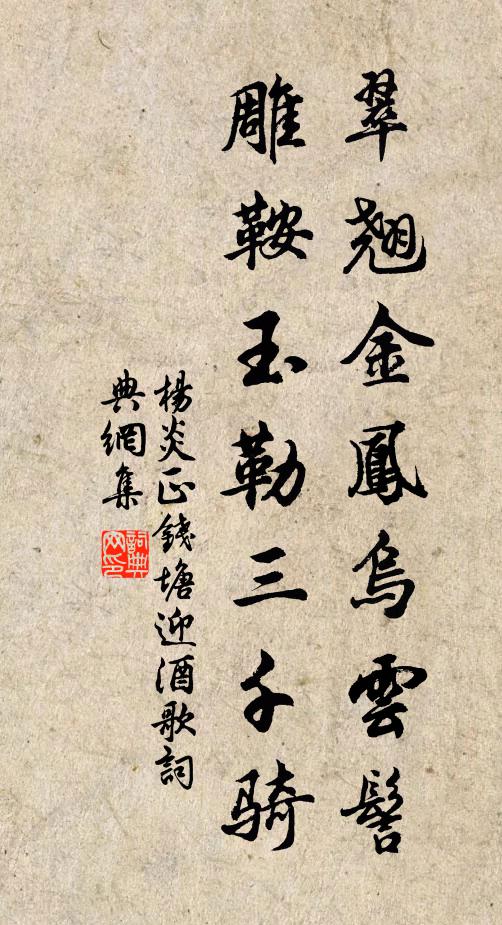 翠翹金鳳烏雲髻
雕鞍玉勒三千騎
楊炎正錢塘迎酒歌詞
典網集
詞典網印